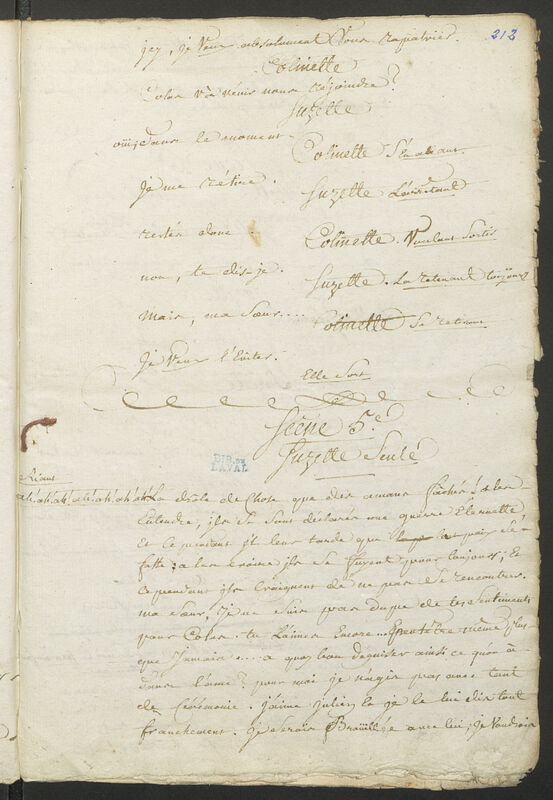 212
icy, je veux absolument vous rapatrier.
Colinette
Colas va venir nous rejoindre?
Suzette
oüi, dans le moment.
Colinette S'en allant
je me rétire.
Suzette L'arretant
restés donc.
Colinette. Voulant Sortir
non, te dis-je.
Suzette. La retenant toujours
Mais, ma Sœur....
Colinette Se retirant
je veux l'Eviter.
Elle Sort
Scène 5.e
Suzette Seule
Riant
ah! ah! ah! ah! ah! ah! ah! La drole de Chose que des amans fachés! a les
Entendre, ils se sont déclarés une guerre Eternelle,
Et cependant il leur tarde que la paix Se
fasse: a les croire ils se fuyent pour toujours, Et
cependant ils craignent de ne pas se rencontrer.
ma Sœur, je ne suis pas dupe de tes Sentiments
pour Colas. tu L'aimes Encore... Peut être même plus
que Jamais.... a quoy bon deguiser ainsi ce quon à
dans l'ame? pour moi je n'agis pas avec tant
de Cérémonie. j'aime julien, la je le lui dis tout
franchement. je serois Broüillée avec lui, je Voudrois